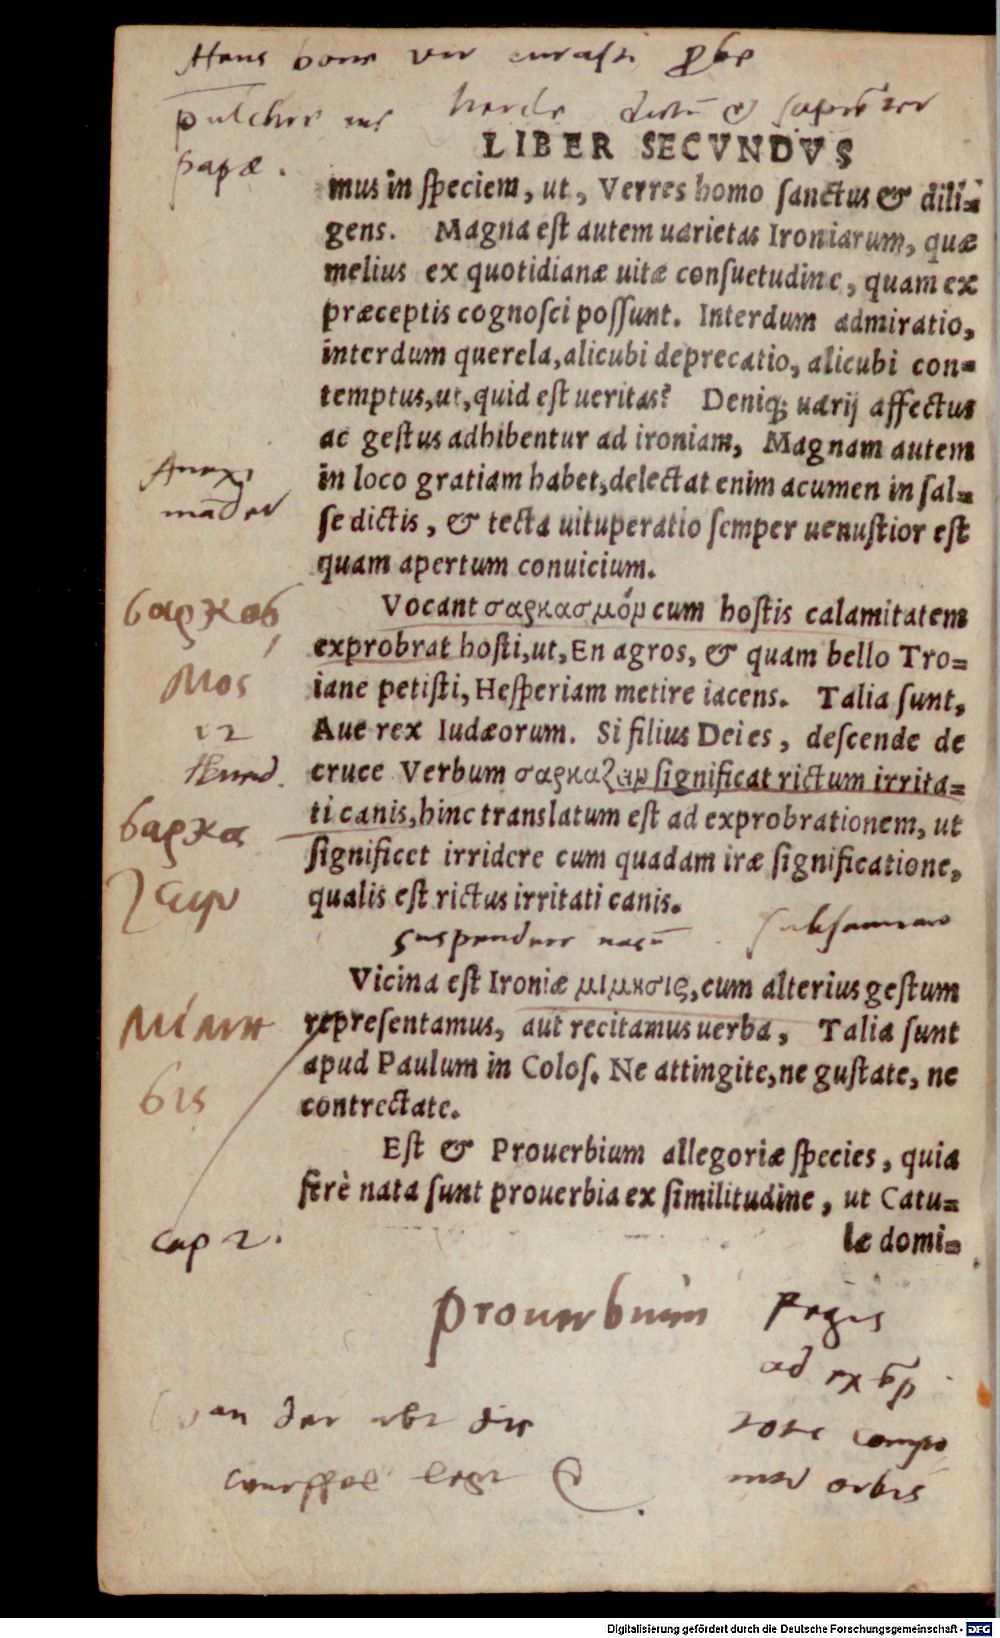 Hans bone vir curasti
pulchre hercle dictū & sapienter
papæ.
LIBER SECVNDVS
mus in ſpeciem, ut, Verres homo ſanctus & dili=
gens. Magna eſt autem uarietas Ironiarum, quæ
melius ex quotidianæ uitæ conſuetudine, quam ex
præceptis cognoſci poſſunt. Interdum admiratio,
interdum querela, alicubi deprecatio, alicubi con=
temptus, ut, quid eſt ueritas? Deniq; uarij affectus
ac geſtus adhibentur ad ironiam, Magnam autem
in loco gratiam habet, delectat enim acumen in ſal=
ſe dictis, & tecta uituperatio ſemper uenuſtior eſt
quam apertum conuicium.
Vocant σαρκασμόμ cum hoſtis calamitatem
exprobrat hoſti, ut, En agros, & quam bello Tro=
iane petiſti, Heſperiam metire iacens. Talia ſunt,
Aue rex Iudæorum. Si filius Dei es, deſcende de
cruce Verbum σαρκαζειμ ſignificat rictum irrita=
ti canis, hinc translatum eſt ad exprobrationem, ut
ſignificet irridere cum quadam iræ ſignificatione,
qualis eſt rictus irritati canis.
suspendere nasū subsannare
Vicina eſt Ironiæ μιμησις, cum alterius geſtum
repreſentamus, aut recitamus uerba, Talia ſunt
apud Paulum in Coloſ. Ne attingite, ne guſtate, ne
contrectate.
Eſt & Prouerbium allegoriæ ſpecies, quia
ferè nata ſunt prouerbia ex ſimilitudine, ut Catu=
læ domi=
σαρκασ
μος
12
σαρκα
ζειν
μίμη
σις
cap 2.
prouerbium
Regis
ad
totus compo
orbis
Digitalisierung gefördert durch die Deutsche Forschungsgemeinschaft - DFG